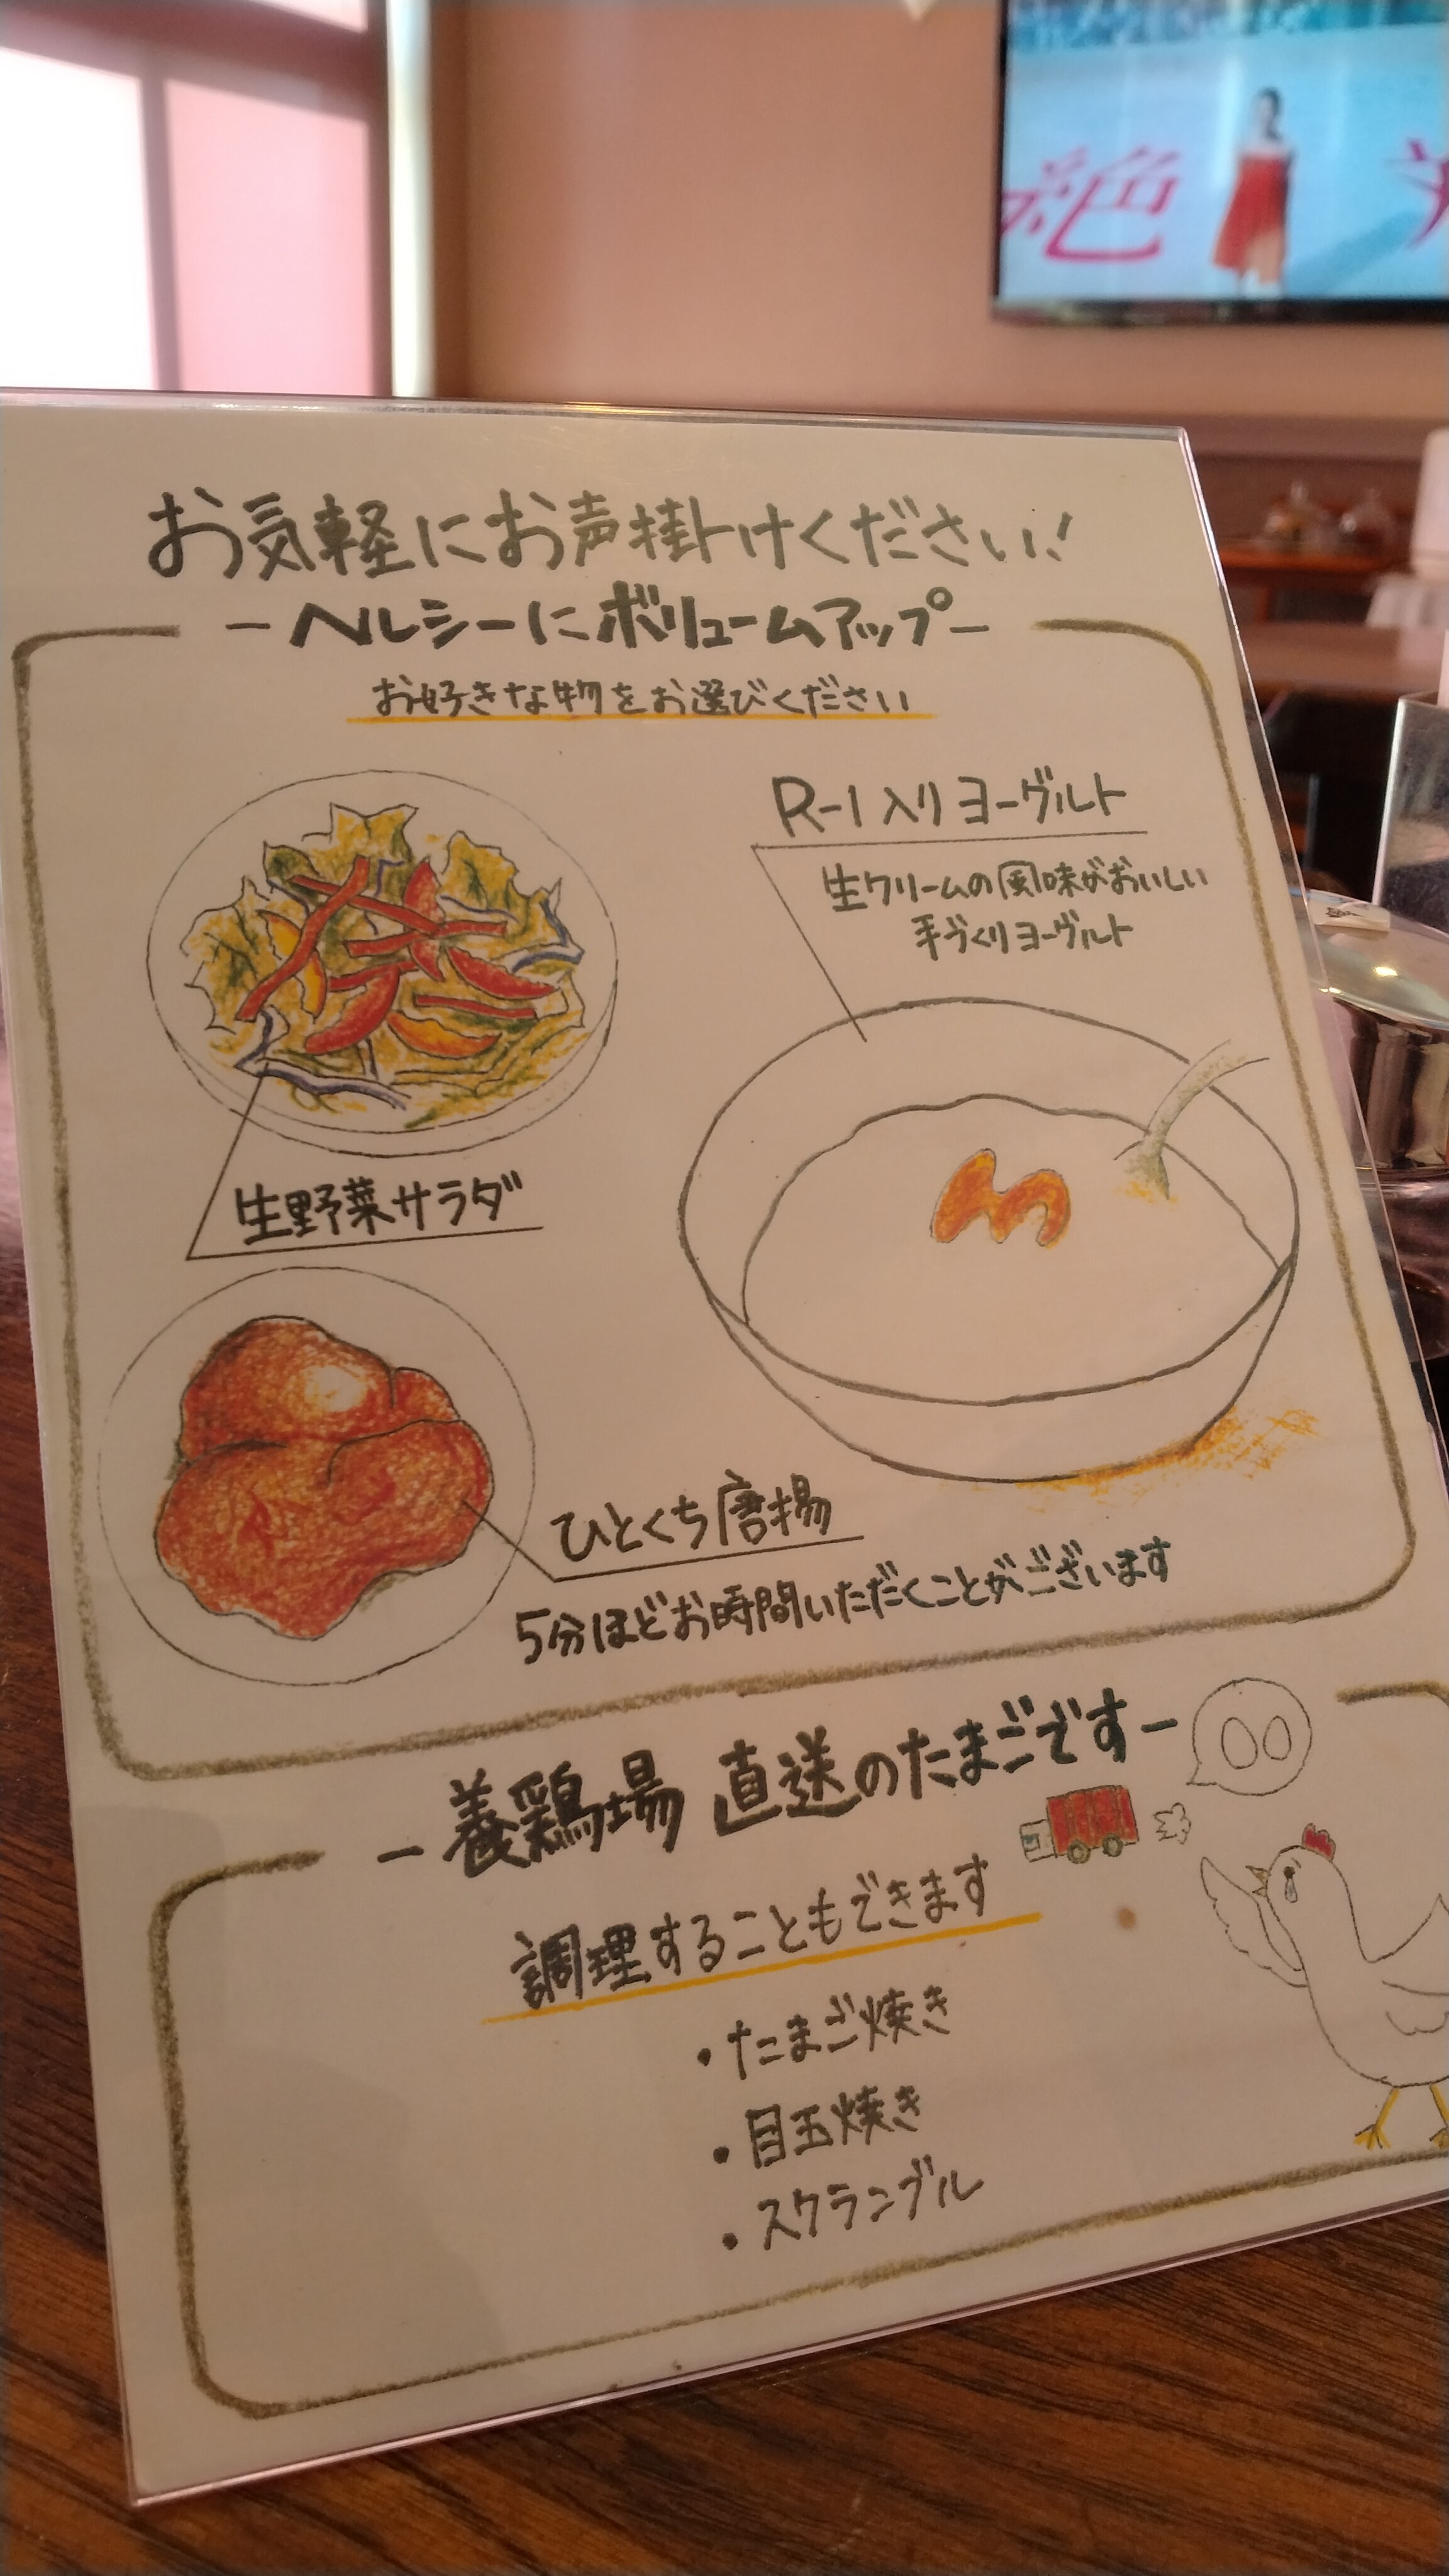 絶
お気軽にお声掛けください!
-ヘルシーにボリュームアップ-
お好きな物をお選びください
R-1入りヨーグルト
生クリームの風味がおいしい
手づくりヨーグルト
生野菜サラダ
ひとくち唐揚
5分ほどお時間いただくことがございます
-養鶏場 直送のたまごです-
調理することもできます
・たまご焼き
・目玉焼き
・スクランブル